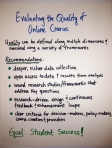 Evaluating the Quality of
Online Courses
Quality can be defined along multiple dimensions &
measured using a variety of frameworks
Recommendations:
• deeper, richer data collection
• open access to data & results from analysis
• sound research studies/frameworks that
address key questions
• research-driven design & continuous
feedback & enhancement loops
• clear criteria for decision-making, policy makers,
[illegible]
Goal: Student Success!